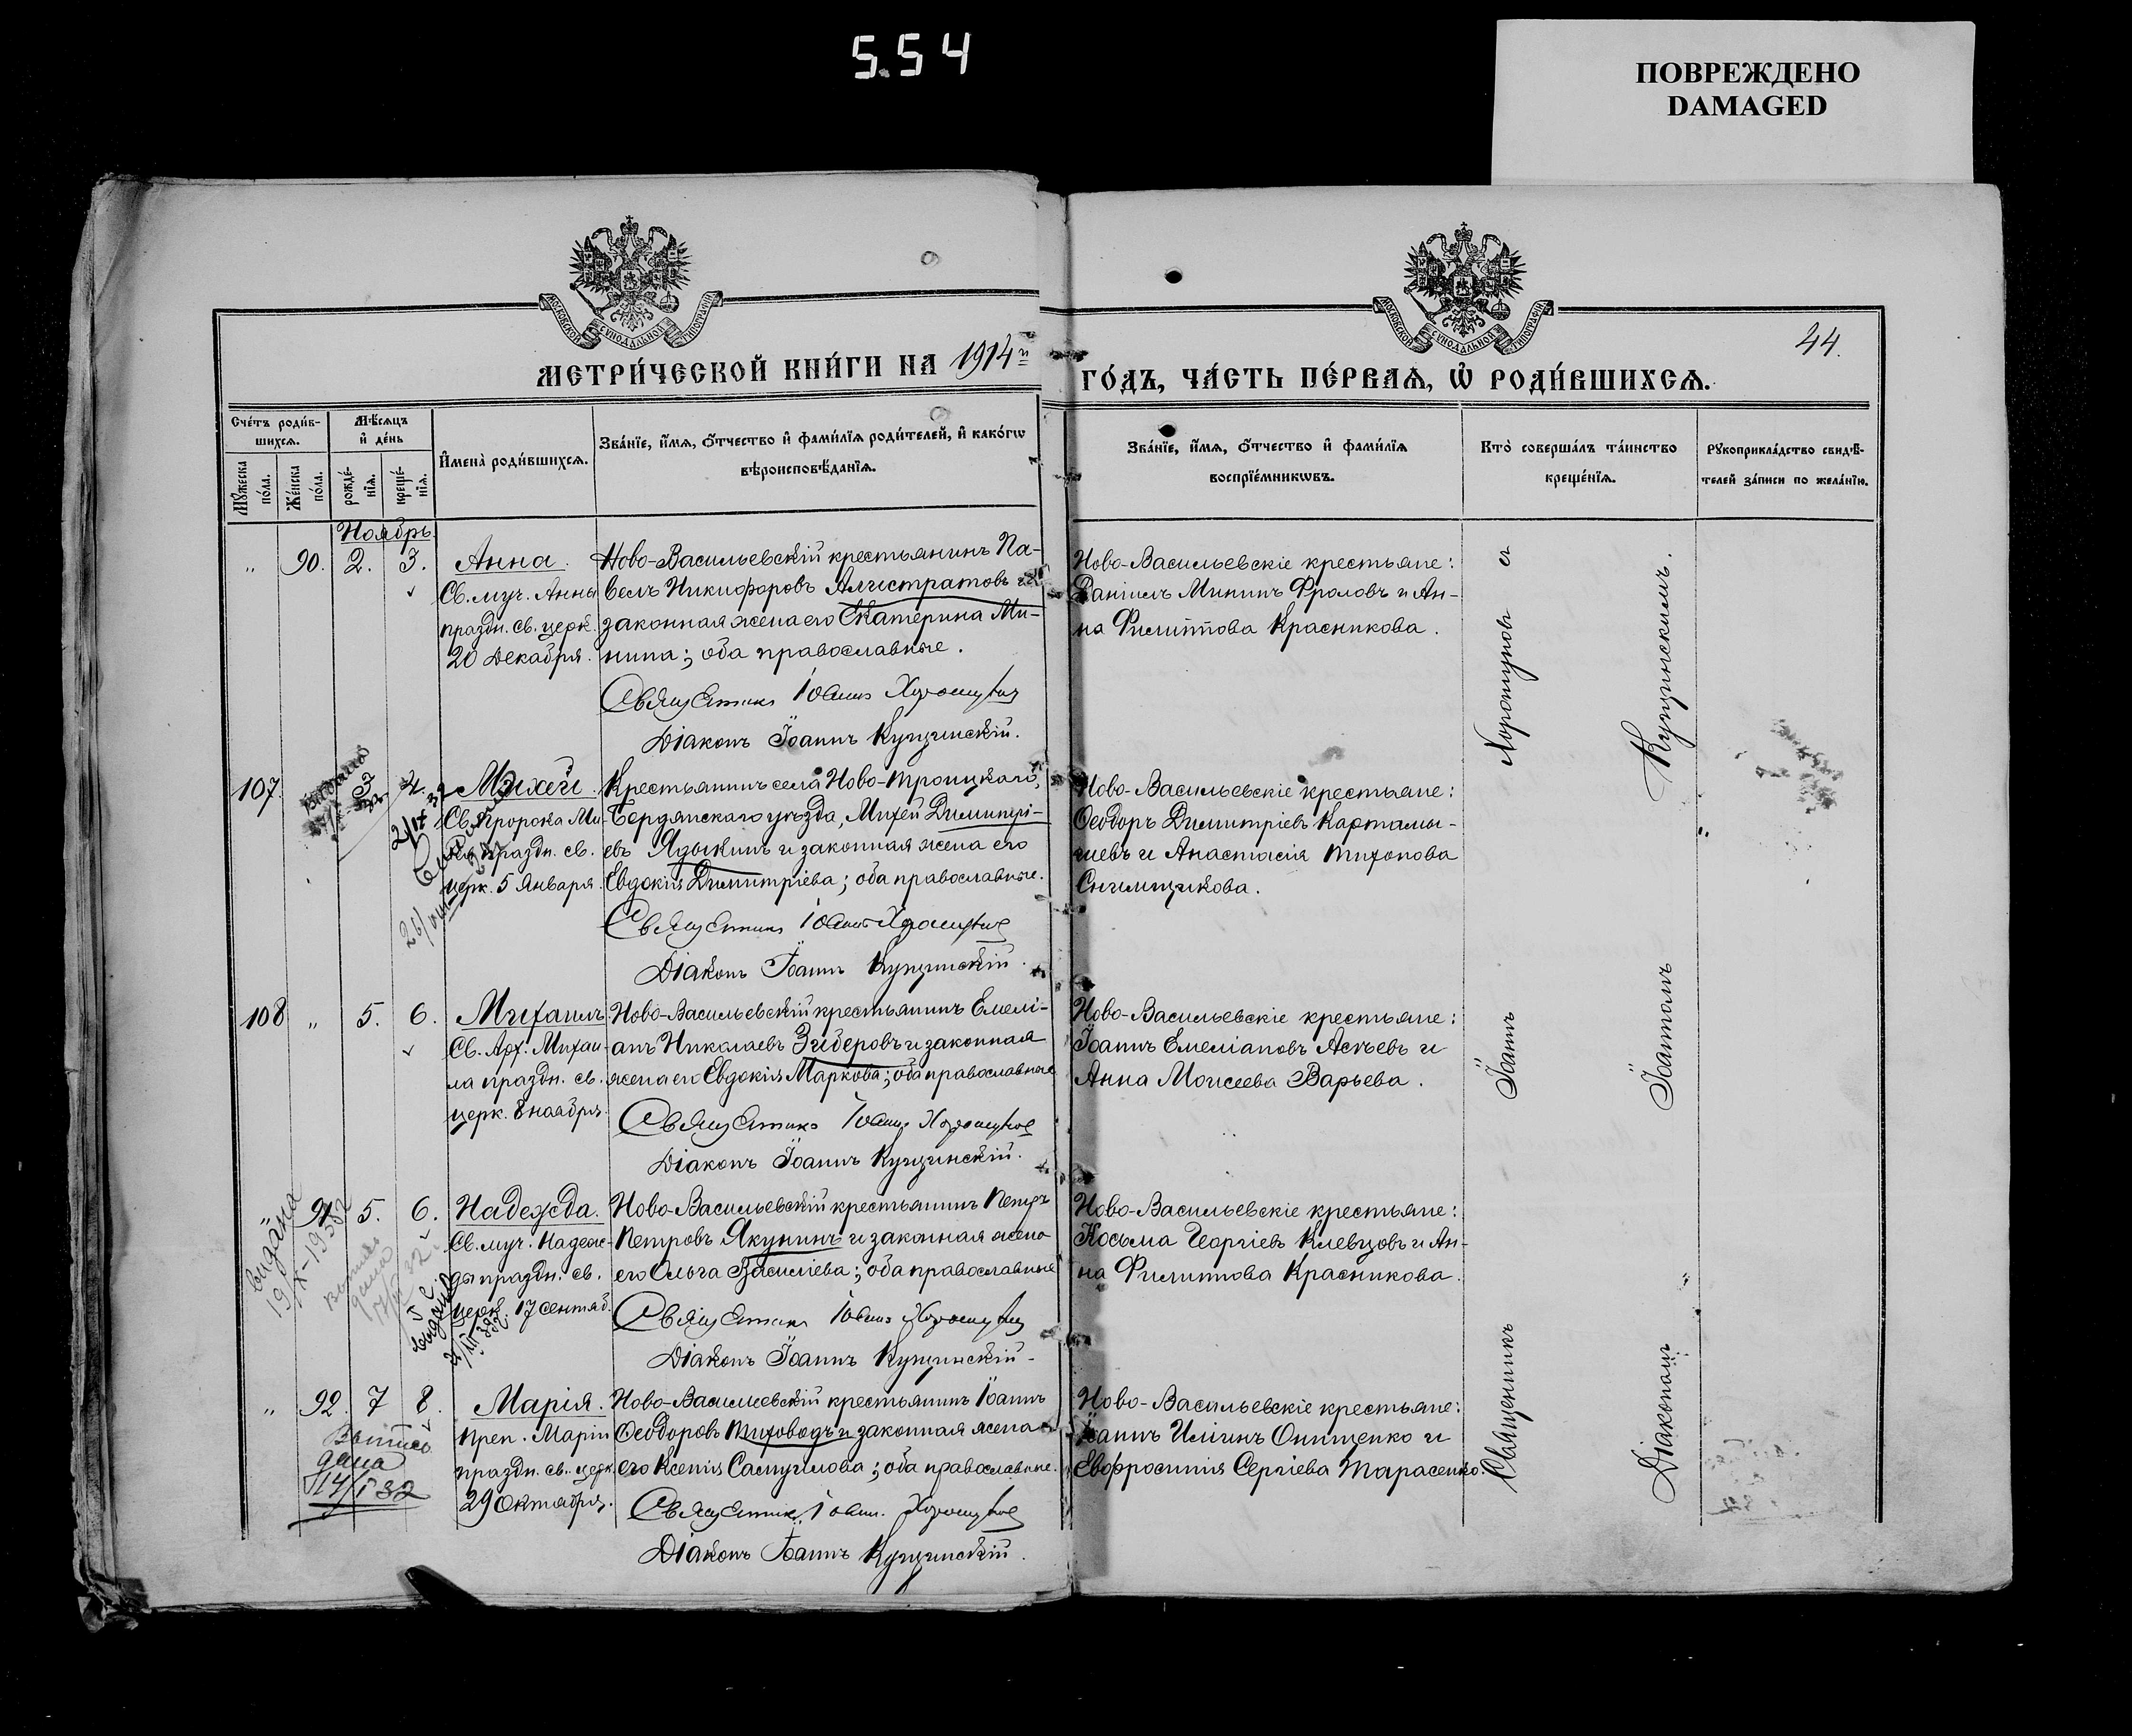 5.54
ПОВРЕЖДЕНО
DAMAGED
МОСКОВСКОЙ СѴНОДАЛЬНОЙ ТИПОГРАФІИ
МОСКОВСКОЙ СѴНОДАЛЬНОЙ ТИПОГРАФІИ
44.
МЕТРИ́ЧЕСКОЙ КНИ́ГИ НА 1914й
ГО́ДЪ, ЧА́СТЬ ПЕ́РВАѦ, Ѡ҆ РОДИ́ВШИХСѦ.
Сче́тъ роди́в-
шихсѧ.
Мꙋжеска по́ла.
Же́нска по́ла.
Мѣсѧцъ
и҆ де́нь
рожде́-
нїѧ.
креще́-
нїѧ.
И҆мена̀ роди́вшихсѧ.
Зва́нїе, и҆́мѧ, ѻ҆́тчество и҆ фами́лїѧ роди́телей, и҆ како́гѡ
вѣроисповѣ́данїѧ.
Зва́нїе, и҆́мѧ, ѻ҆́тчество и҆ фами́лїѧ
воспрїе́мникѡвъ.
Кто̀ соверша́лъ та́инство
креще́нїѧ.
Рꙋкоприкла́дство свидѣ́-
телей за́писи по жела́нїю.
Ноябрь.
" 90. 2. 3.
Анна.
Св. муч. Анны
праздн. св. церк.
20 Декабря.
Ново-Васильевскій крестьянинъ Па-
велъ Никифоровъ Алистратовъ и
законная жена его Екатерина Ми-
нина; оба православные.
Священникъ Іоаннъ Хорошунов
Діаконъ Іоаннъ Купчинскій.
Ново-Васильевскіе крестьяне:
Даніилъ Мининъ Фроловъ и Ан-
на Филиппова Красникова.
107. 3 4.
Михей.
Св. Пророка Ми-
хея праздн. св.
церк. 5 Января.
Крестьянинъ села Ново-Троицкаго,
Бердянскаго уѣзда, Михей Димитрі-
евъ Ядыкинъ и законная жена его
Евдокія Димитріева; оба православные.
Священникъ Іоаннъ Хорошунов
Діаконъ Іоаннъ Купчинскій.
Ново-Васильевскіе крестьяне:
Ѳеодоръ Димитріевъ Картамы-
шевъ и Анастасія Тихонова
108 " 5. 6.
Михаилъ
Св. Арх. Михаи-
ла праздн. св.
церк. 8 ноября.
Ново-Васильевскій крестьянинъ Емелі-
анъ Николаевъ Зиберовъ и законная
жена его Евдокія Маркова; оба православные
Священникъ Іоаннъ Хорошунов
Діаконъ Іоаннъ Купчинскій.
Ново-Васильевскіе крестьяне:
Іоаннъ Емеліановъ Асѣевъ и
Анна Моисеева Варьева.
" 91. 5. 6.
видана
19/X-1932
Надежда.
Св. муч. Надеж-
ды праздн. св.
церк. 17 сентяб.
Ново-Васильевскій крестьянинъ Петръ
Петровъ Якунинъ и законная жена
его Ольга Василіева; оба православные
Священникъ Іоаннъ Хорошунов
Діаконъ Іоаннъ Купчинскій.
Ново-Васильевскіе крестьяне:
Косьма Георгіевъ Клевцовъ и Ан-
на Филиппова Красникова.
" 92. 7 8.
дана
14/I 32
Марія.
Преп. Маріи
праздн. св. церк.
29 Октября.
Ново-Васильевскій крестьянинъ Іоаннъ
Ѳеодоровъ Тиховодъ и законная жена
его Ксенія Самуилова; оба православные.
Священникъ Іоанн. Хорошунов
Діаконъ Іоаннъ Купчинскій.
Ново-Васильевскіе крестьяне:
Іоаннъ Иліинъ Онищенко и
Евфросинія Сергіева Тарасенко.
Священникъ Іоаннъ Хорошуновъ съ
Діакономъ Іоанномъ Купчинскимъ.